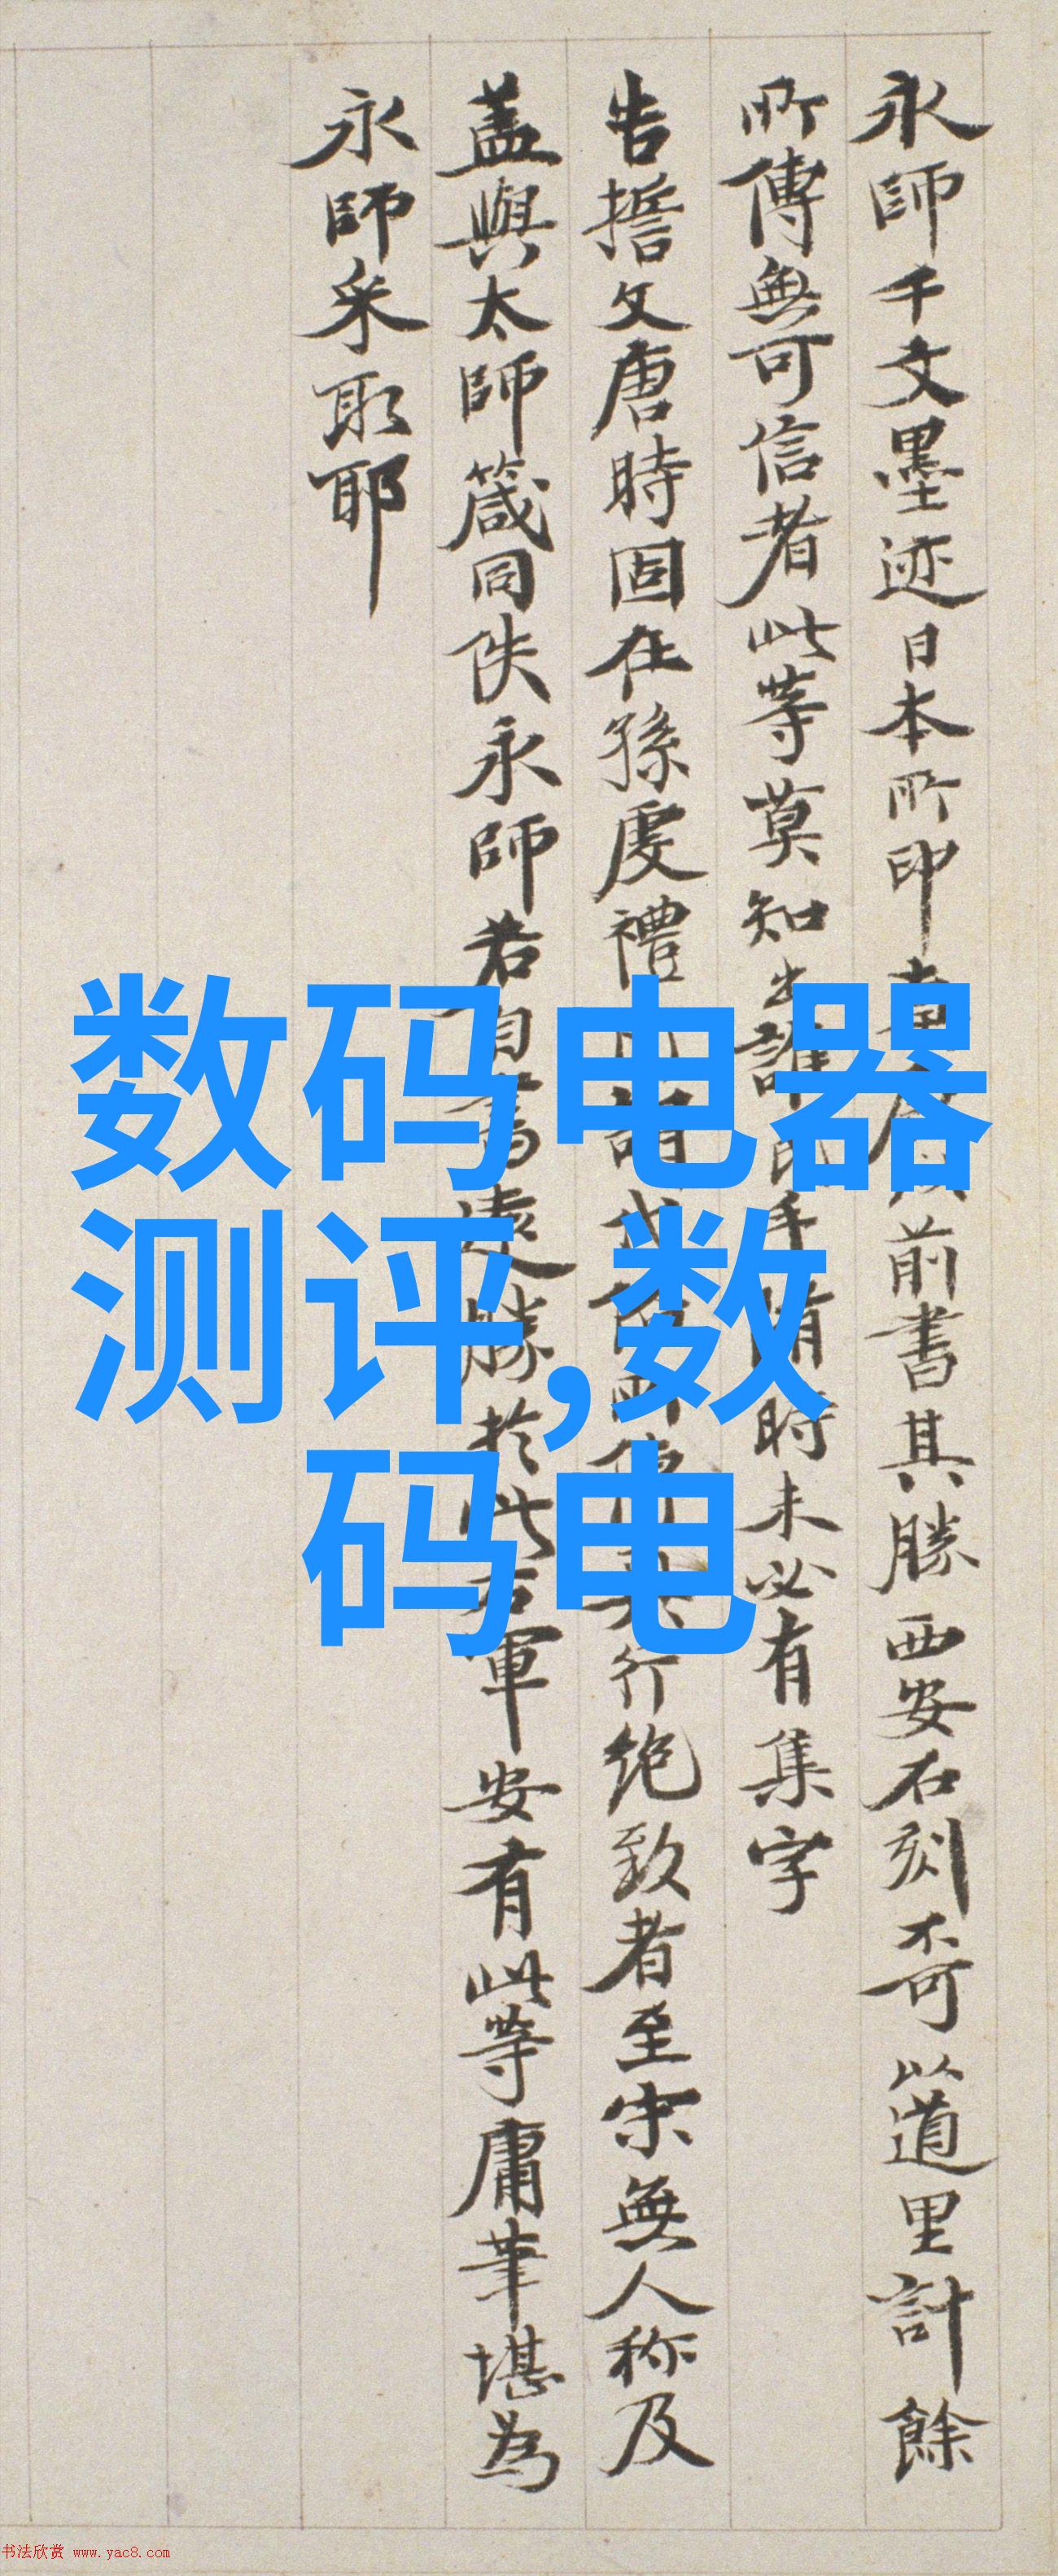 永師千文墨迹日本所印 前書其勝西安石刻不可以道里計餘
所傳無可信者此等莫知出誰氏手隋時未必有集字
告誓文唐時固在孫虔禮 行絶致者至宋無人称及
盖與太師箴同佚永師若自書遠勝於此右軍安有此等庸筆堪為
永師采取耶
数码电器
测评,数
码电
书法欣赏 www.yac8.com